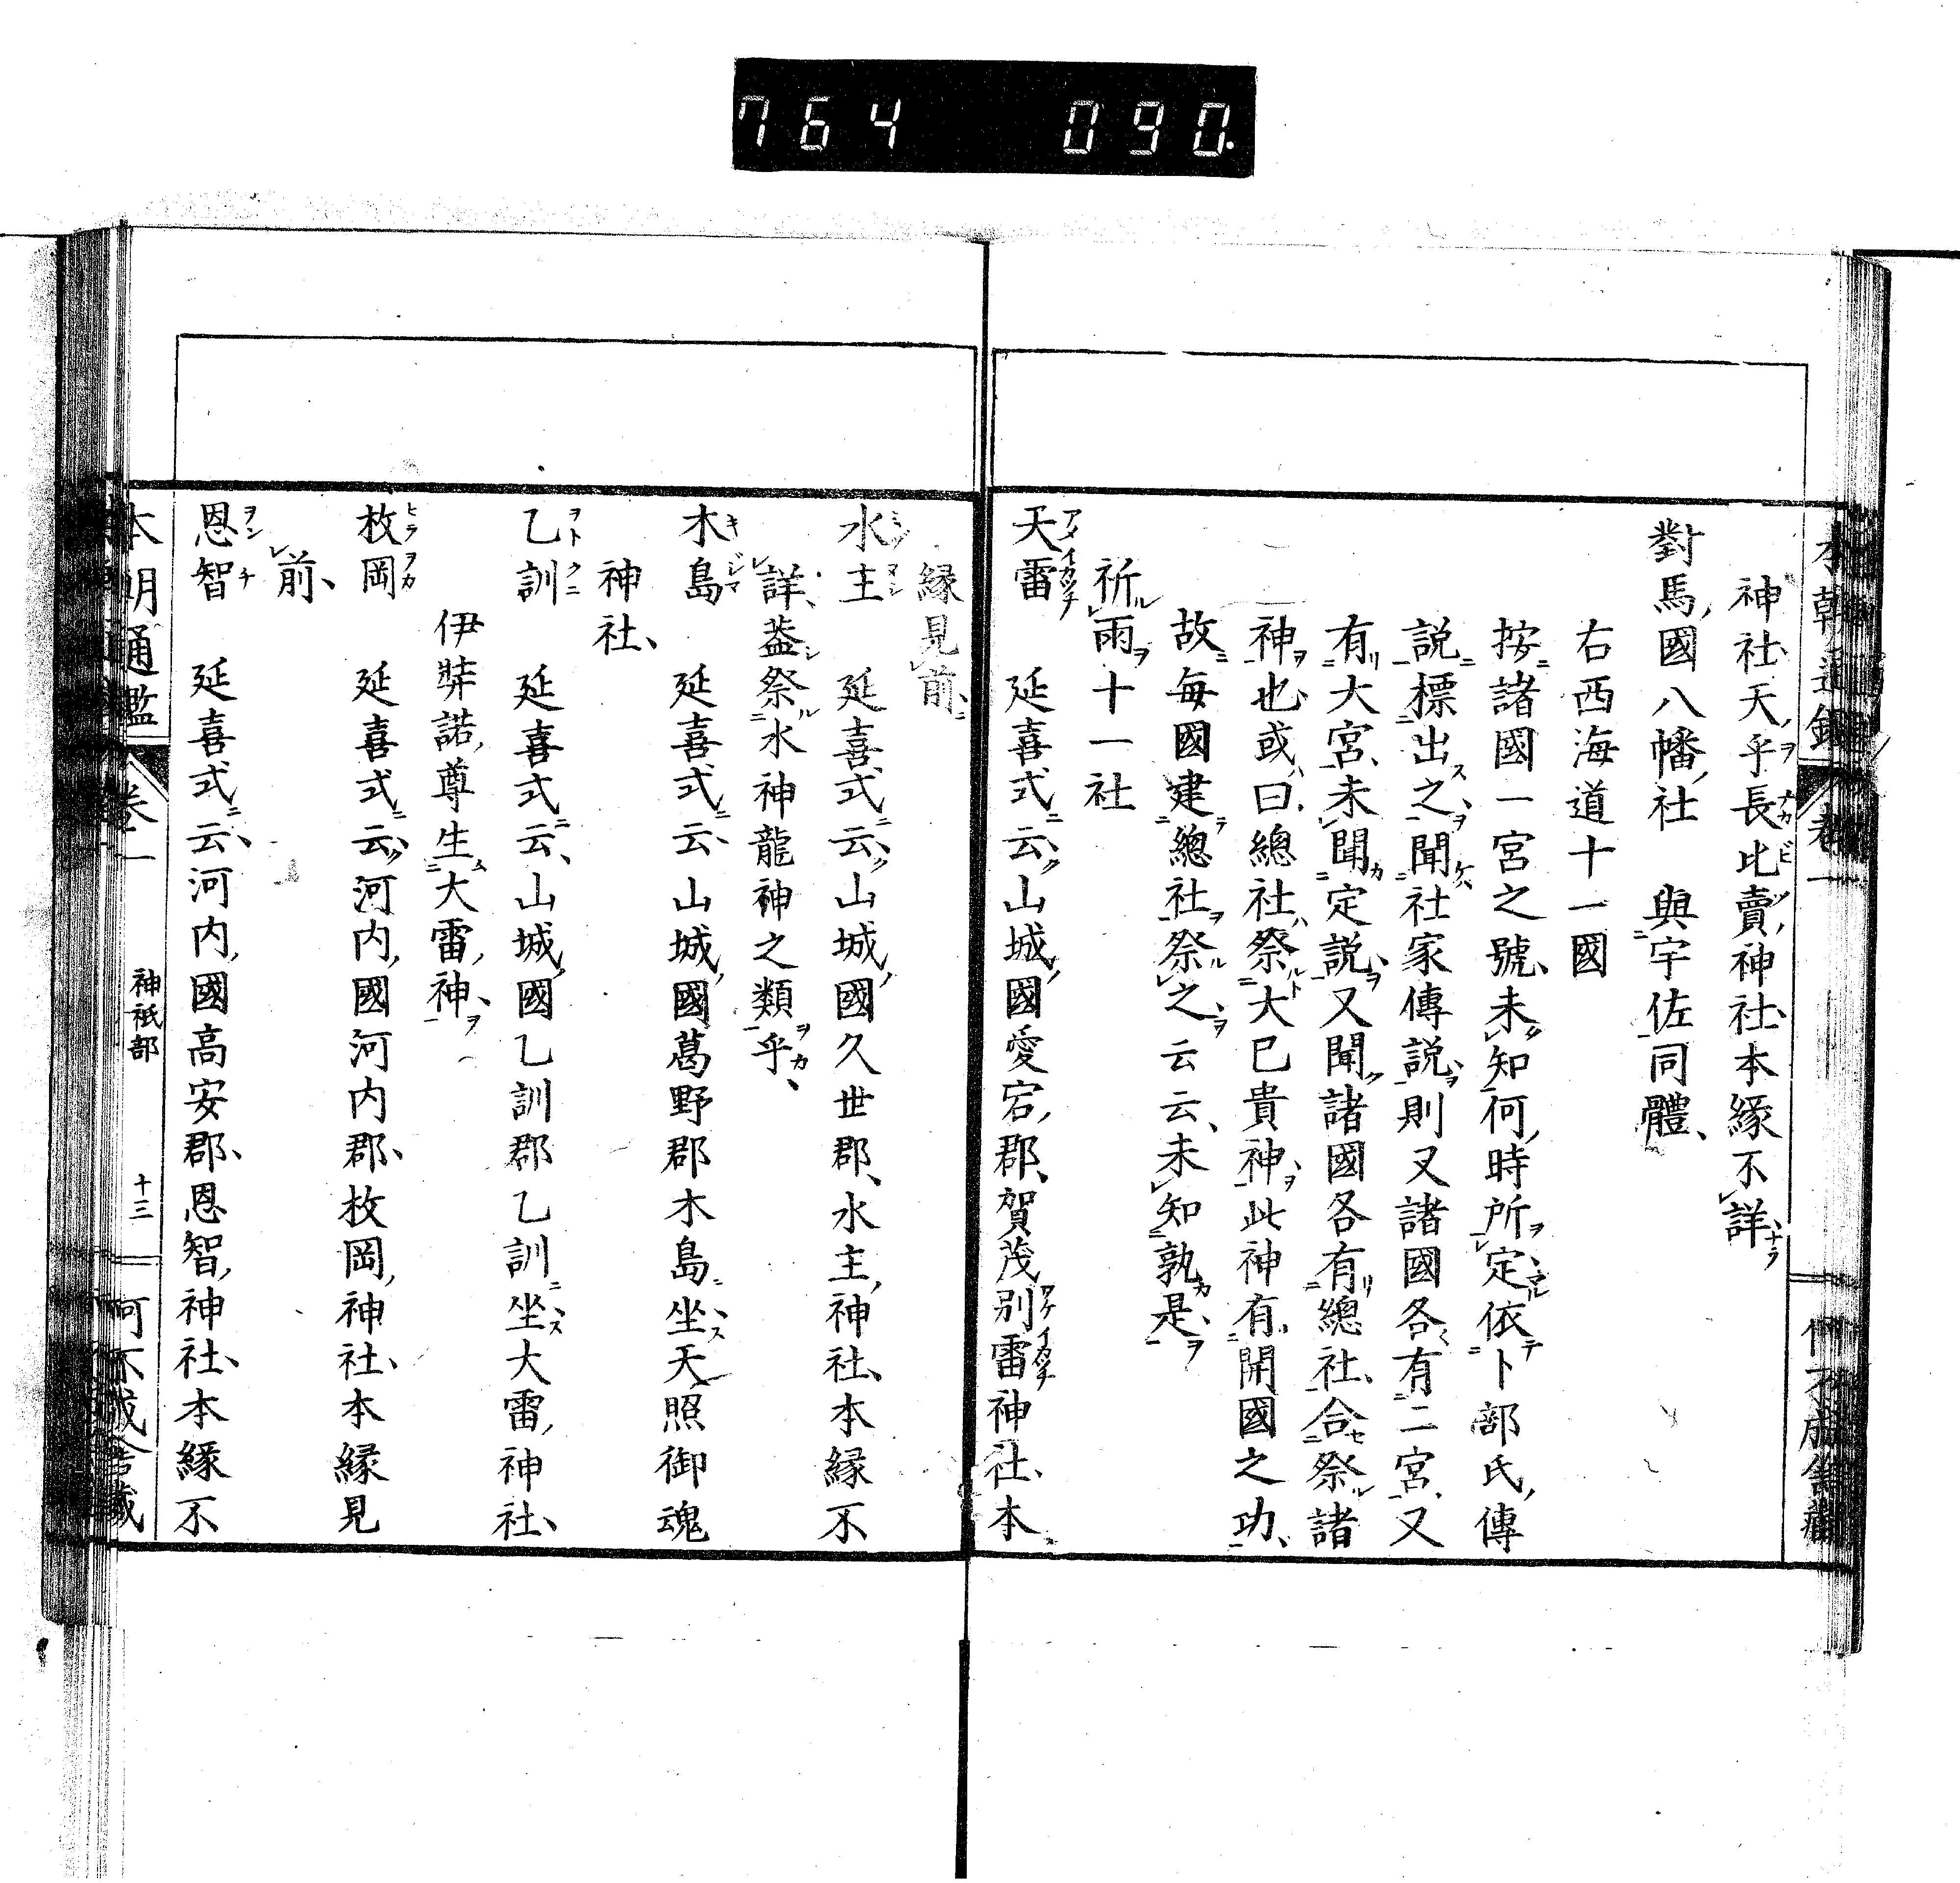 764 090.
神社天乎長比賣神社本縁不詳
對馬國八幡社 與宇佐同體
右西海道十一國
按諸國一宮之號未知何時所定依卜部氏傳
説標出之聞社家傳説則又諸國各有二宮又
有大宮未聞定説又聞諸國各有總社合祭諸
神也或曰總社祭大已貴神此神有開國之功
故毎國建總社祭之云云未知孰是
祈雨十一社
天雷 延喜式云山城國愛宕郡賀茂別雷神社本
縁見前
水主 延喜式云山城國久世郡水主神社本縁不
詳蓋祭水神龍神之類乎
木島 延喜式云山城國葛野郡木島坐天照御魂
神社
乙訓 延喜式云山城國乙訓郡乙訓坐大雷神社
伊弉諾尊生大雷神
枚岡 延喜式云河内國河内郡枚岡神社本縁見
前
恩智 延喜式云河内國高安郡恩智神社本縁不
本朝通鑑 卷一 神祇部 十三